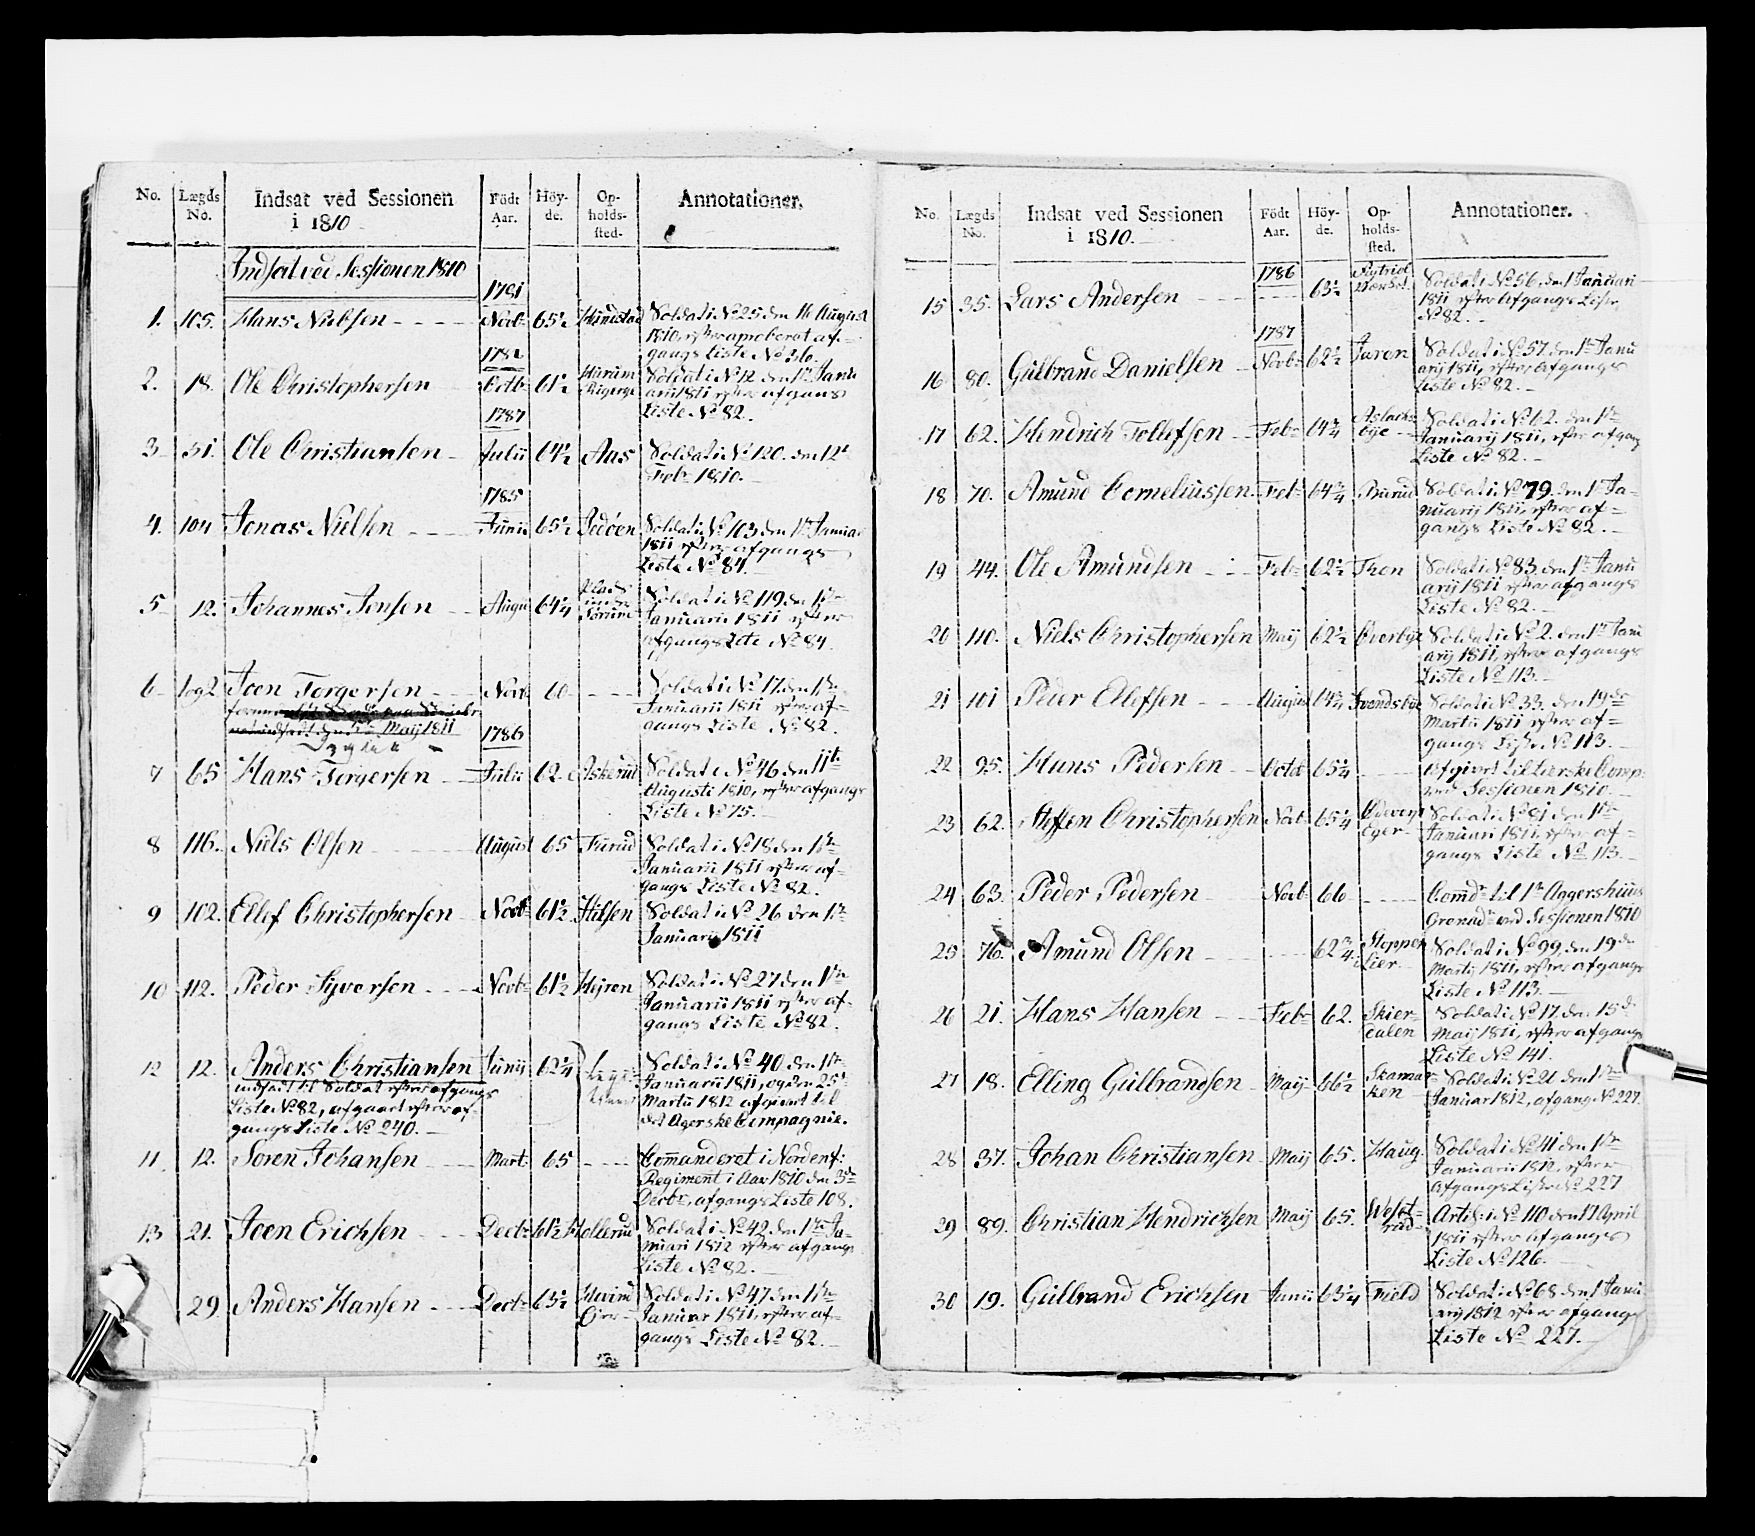 No. Lægds No. Indsat ved Sessionen i 1810 Födt Aar. Höyde. Opholdssted. Annotationer.
Indsat ved Sessionen 1810
1781
1. 105. Hans Nielsen Novb: 65½ Soldat i No 25 den 16 August
1810, efter approberet af-
gangs Liste No 36.
178
2. 18. Ole Christophersen Octb: 61½ Soldat i No 12 den 1te Janu
arii 1811 efter afgangs
Liste No 82.
1787
3 51. Ole Christiansen Julii 64½ Aas Soldat i No 120. den 12t
Feb: 1810.
1785
4. 104 Jonas Nielsen Junii 65½ Soldat i No 103 den 1te Januar
1811 efter afgangs
Liste No 84.
5 12. Johannes Jensen Augu 64¼ Plads
under
Sorum Soldat i No 119 den 1te
Januarii 1811 efter
afgangs Liste No 84.
6 Joen Torgersen Novb: 60 Soldat i No 17. den 1te
Januarii 1811 efter af-
gangs Liste No 82.
Maij 1811
1786
7 65 Hans Torgersen Julii 62 Askerud Soldat i No 46 den 11te
Augusti 1810, efter afgangs
Liste No 75.
8 116. Niels Olsen August 65 Furud Soldat i No 18 den 1te
Januarii 1811 efter af-
gangs Liste No 82.
9 102. Ellef Christophersen Novb: 61½ Hilsen Soldat i No 26 den 1te
Januarij 1811
10 112. Peder Syversen Novb: 61½ Soldat i No 27 den 1te
Januarii 1811 efter af-
gangs Liste No 82.
12 12. Anders Christiansen Junij 62¼ Soldat i No 40 den 1te
Januarii 1811, og den 25t
Martii 1812 afgivet til
det Egerske Compagnie.
indsadt til Soldat efter afgangs
Liste No 82, afgaaet efter af-
gangs Liste No 240.
11 12. Soren Johansen Mart: 65 Commanderet i Nordenf:
Regiment i Aar 1810 den 3de
Decbr, afgangs Liste 108.
13 21. Joen Erichsen Decb: 61½ Hollerud Soldat i No 42. den 1te Ja-
nuari 1812 efter afgangs
Liste No 82.
29 Anders Hansen Decb: 63½ Soldat i No 47 den 1te
Januar 1811, efter af-
gangs Liste No 82.
No. Lægds No. Indsat ved Sessionen i 1810. Födt Aar. Höyde. Opholdssted. Annotationer.
1786
15 35. Lars Andersen 63½ Soldat i No 56. den 1 Januari
1811 efter Afgangs Liste
No 82.
1787
16 80. Gulbrand Danielsen Novb: 62½ Jaren Soldat i No 57. den 1te Janu
arij 1811, efter Afgangs
Liste No 82.
17 62. Hendrich Tollefsen Feb: 64¾ Aslachs
bye Soldat i No 62. den 1te
Januarij 1811, efter afgang
Liste No 82.
18 70. Amund Corneliussen Feb: 64¾ Burud Soldat i No 79. den 1te Ja-
nuarij 1811, efter af-
gangs Liste No 82.
19 44. Ole Amundsen Feb: 62½ Thon Soldat i No 83. den 1te Janu
arij 1811 efter afgangs
Liste No 82.
20 110. Niels Christophersen Maij 62½ Overbye Soldat i No 2. den 1te Janu
arij 1811, efter afgangs
Liste No 113.
21 101 Peder Ellefsen August Svendsbye Soldat i No 33. den 19de
Martii 1811 efter af-
gangs Liste No 113.
22 95. Hans Pedersen Octob 65¼ Afgivet til Lierske Comp:
ved Sessionen 1810.
23 62. Steffen Christophersen Novb: 65¼ Eger Soldat i No 81 den 1te
Januari 1811. efter af-
gangs Liste No 113.
24 63. Peder Pedersen Novb: 66 Comd: til 1te Aggershuus
Grenad: ved Sessionen 1810
25 76. Amund Olsen 62¾ Stoppen
Lier Soldat i No 99. den 19de
Martij 1811, efter afgangs
Liste No 113.
26 21. Hans Hansen Feb: 62. Skier-
dalen Soldat i No 17. den 15d.
Maij 1811, efter afgangs
Liste No 141.
27 18. Elling Gulbrandsen Maij 66½ Skamar-
ken Soldat i No 21 den 1te
Januar 1812, afgang No 227.
28 37. Johan Christiansen Maij 65. Haug Soldat i No 41 den 1te
Januarii 1812, efter
Afgangs Liste No 227
29 89. Christian Hendrichsen Maij 65. Westrud Artil: i No 110 den 17 April
1811 efter afgangs
Liste No 126.
30 19. Gulbrand Erichsen Junii 63¼ Field Soldat i No 68 den 1 Janu
arij 1812 efter afgangs
Liste No 227.